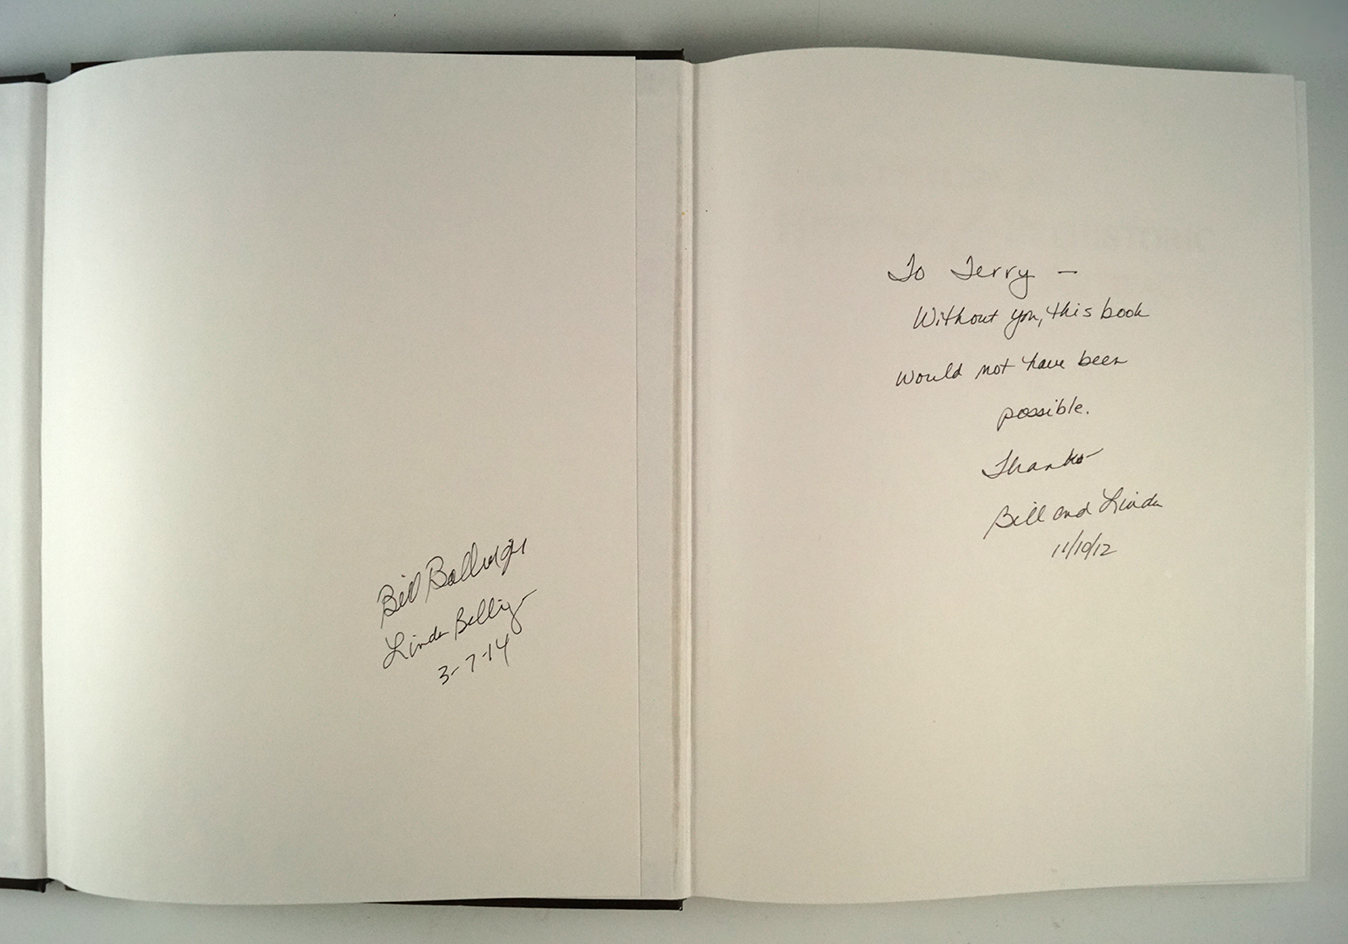 Bill Ballinger
Linda Ballinger
3-7-14
To Terry —
Without you, this book
would not have been
possible.
Thanks
Bill and Linda
11/10/12